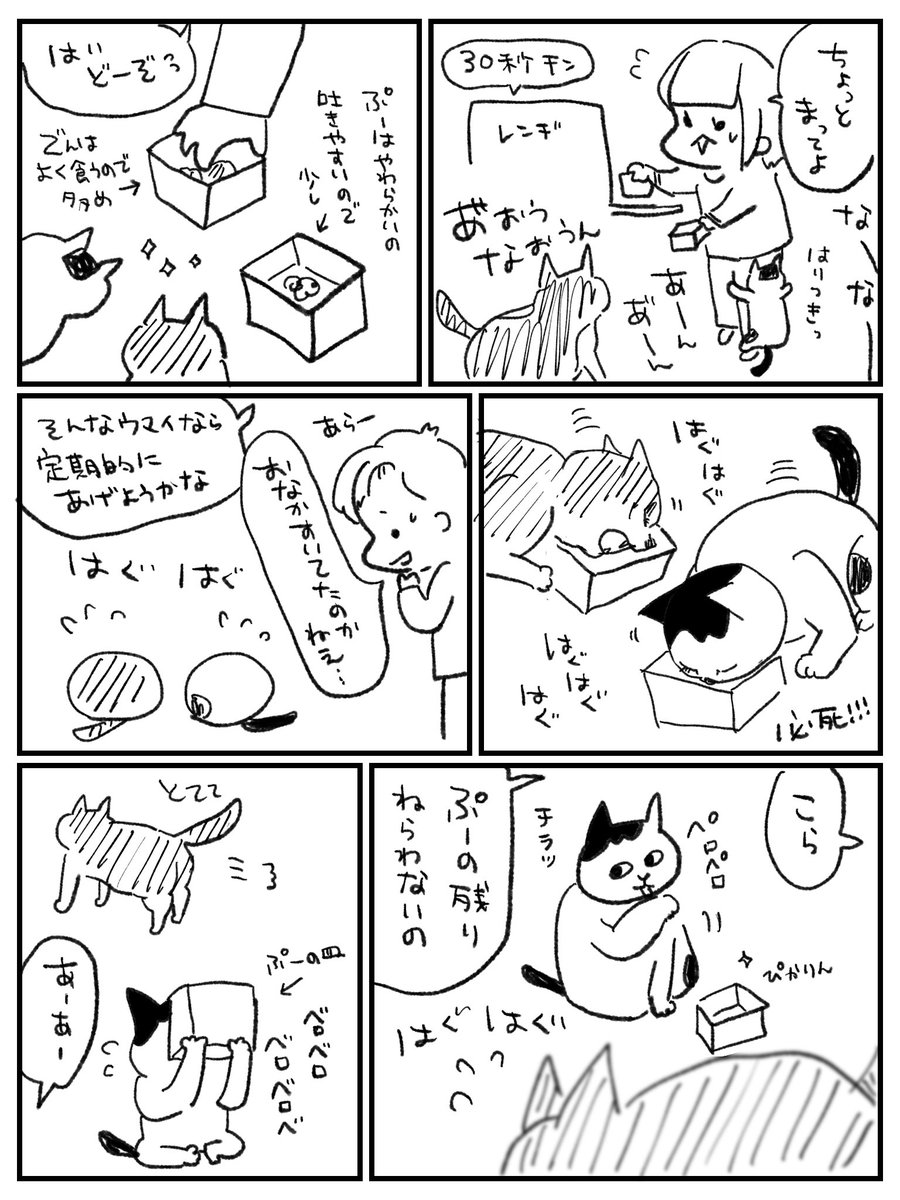 ちょっと
まってよ
30秒チン
レンジ
な
な
はりつきっ
あ゛おうう
なおうん
あーん
あ゛ーん
はい
どーぞっ
ぷーはやわらかいの
吐きやすいので
少し
でんは
よく食うので
多め
はぐ
はぐ
はぐ
はぐ
はぐ
必死!!!
あらー
おなかすいてたのか
ねえ…
そんなウマイなら
定期的に
あげようかな
はぐ
はぐ
こら
ペロペロ
チラッ
ぷーの残り
ねらわないの
ぴかりん
はぐ はぐ
とててて
ぷーの皿
ベロベロ
ベロベロベ
あーあー